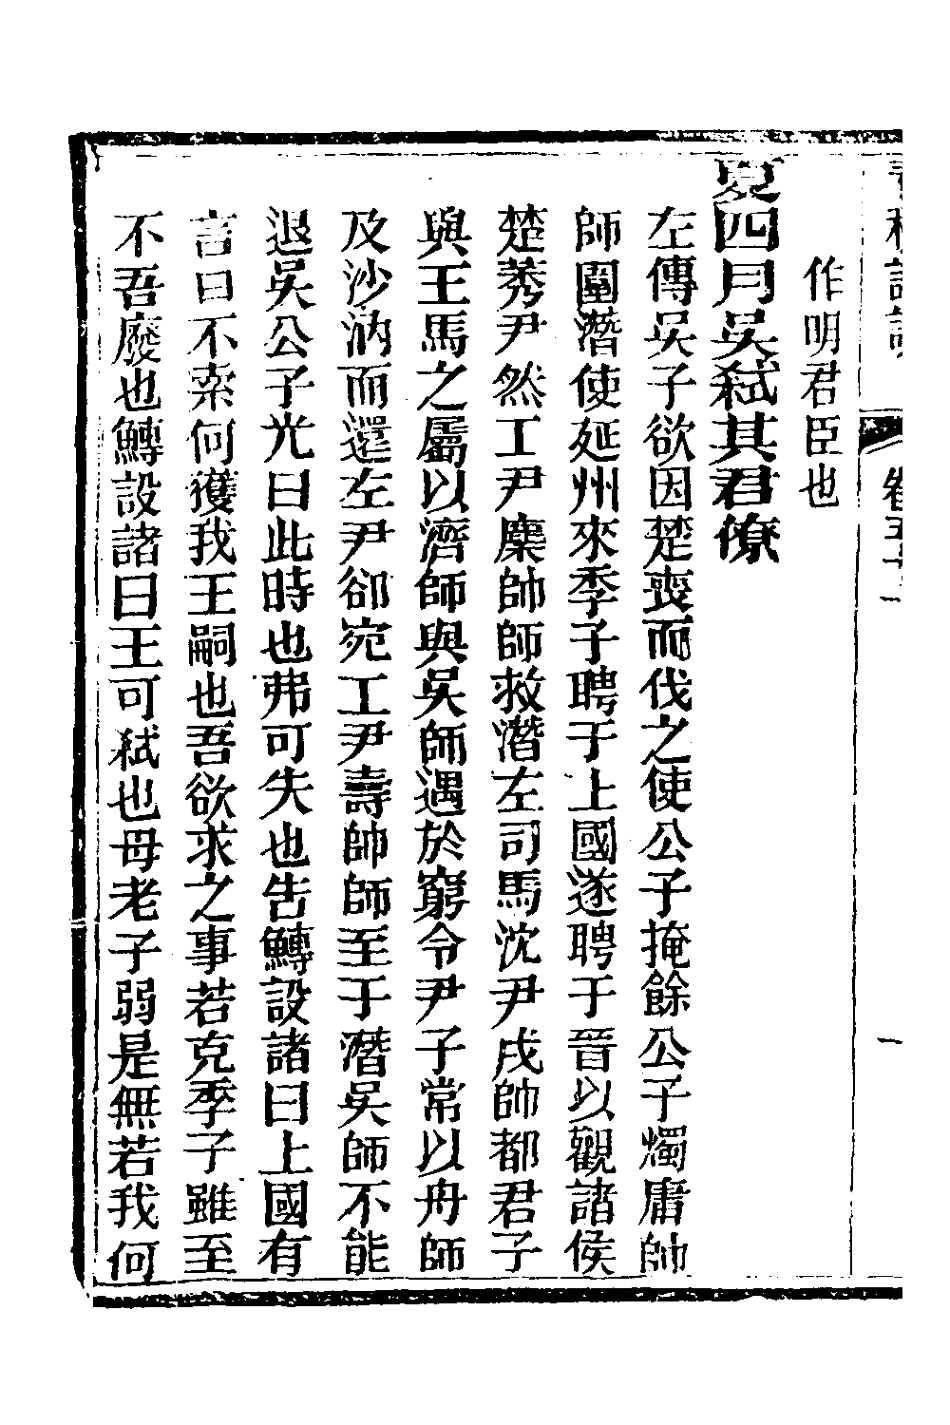 作明君臣也
夏四月吳弑其君僚
左傳吳子欲因楚喪而伐之使公子掩餘公子燭庸帥
師圍潛使延州來季子聘于上國遂聘于晉以觀諸侯
楚莠尹然工尹麇帥師救潛左司馬沈尹戌帥都君子
與王馬之屬以濟師與吳師遇於窮令尹子常以舟師
及沙汭而還左尹郤宛工尹壽帥師至于潛吳師不能
退吳公子光曰此時也弗可失也告鱄設諸曰上國有
言曰不索何獲我王嗣也吾欲求之事若克季子雖至
不吾廢也鱄設諸曰王可弑也母老子弱是無若我何